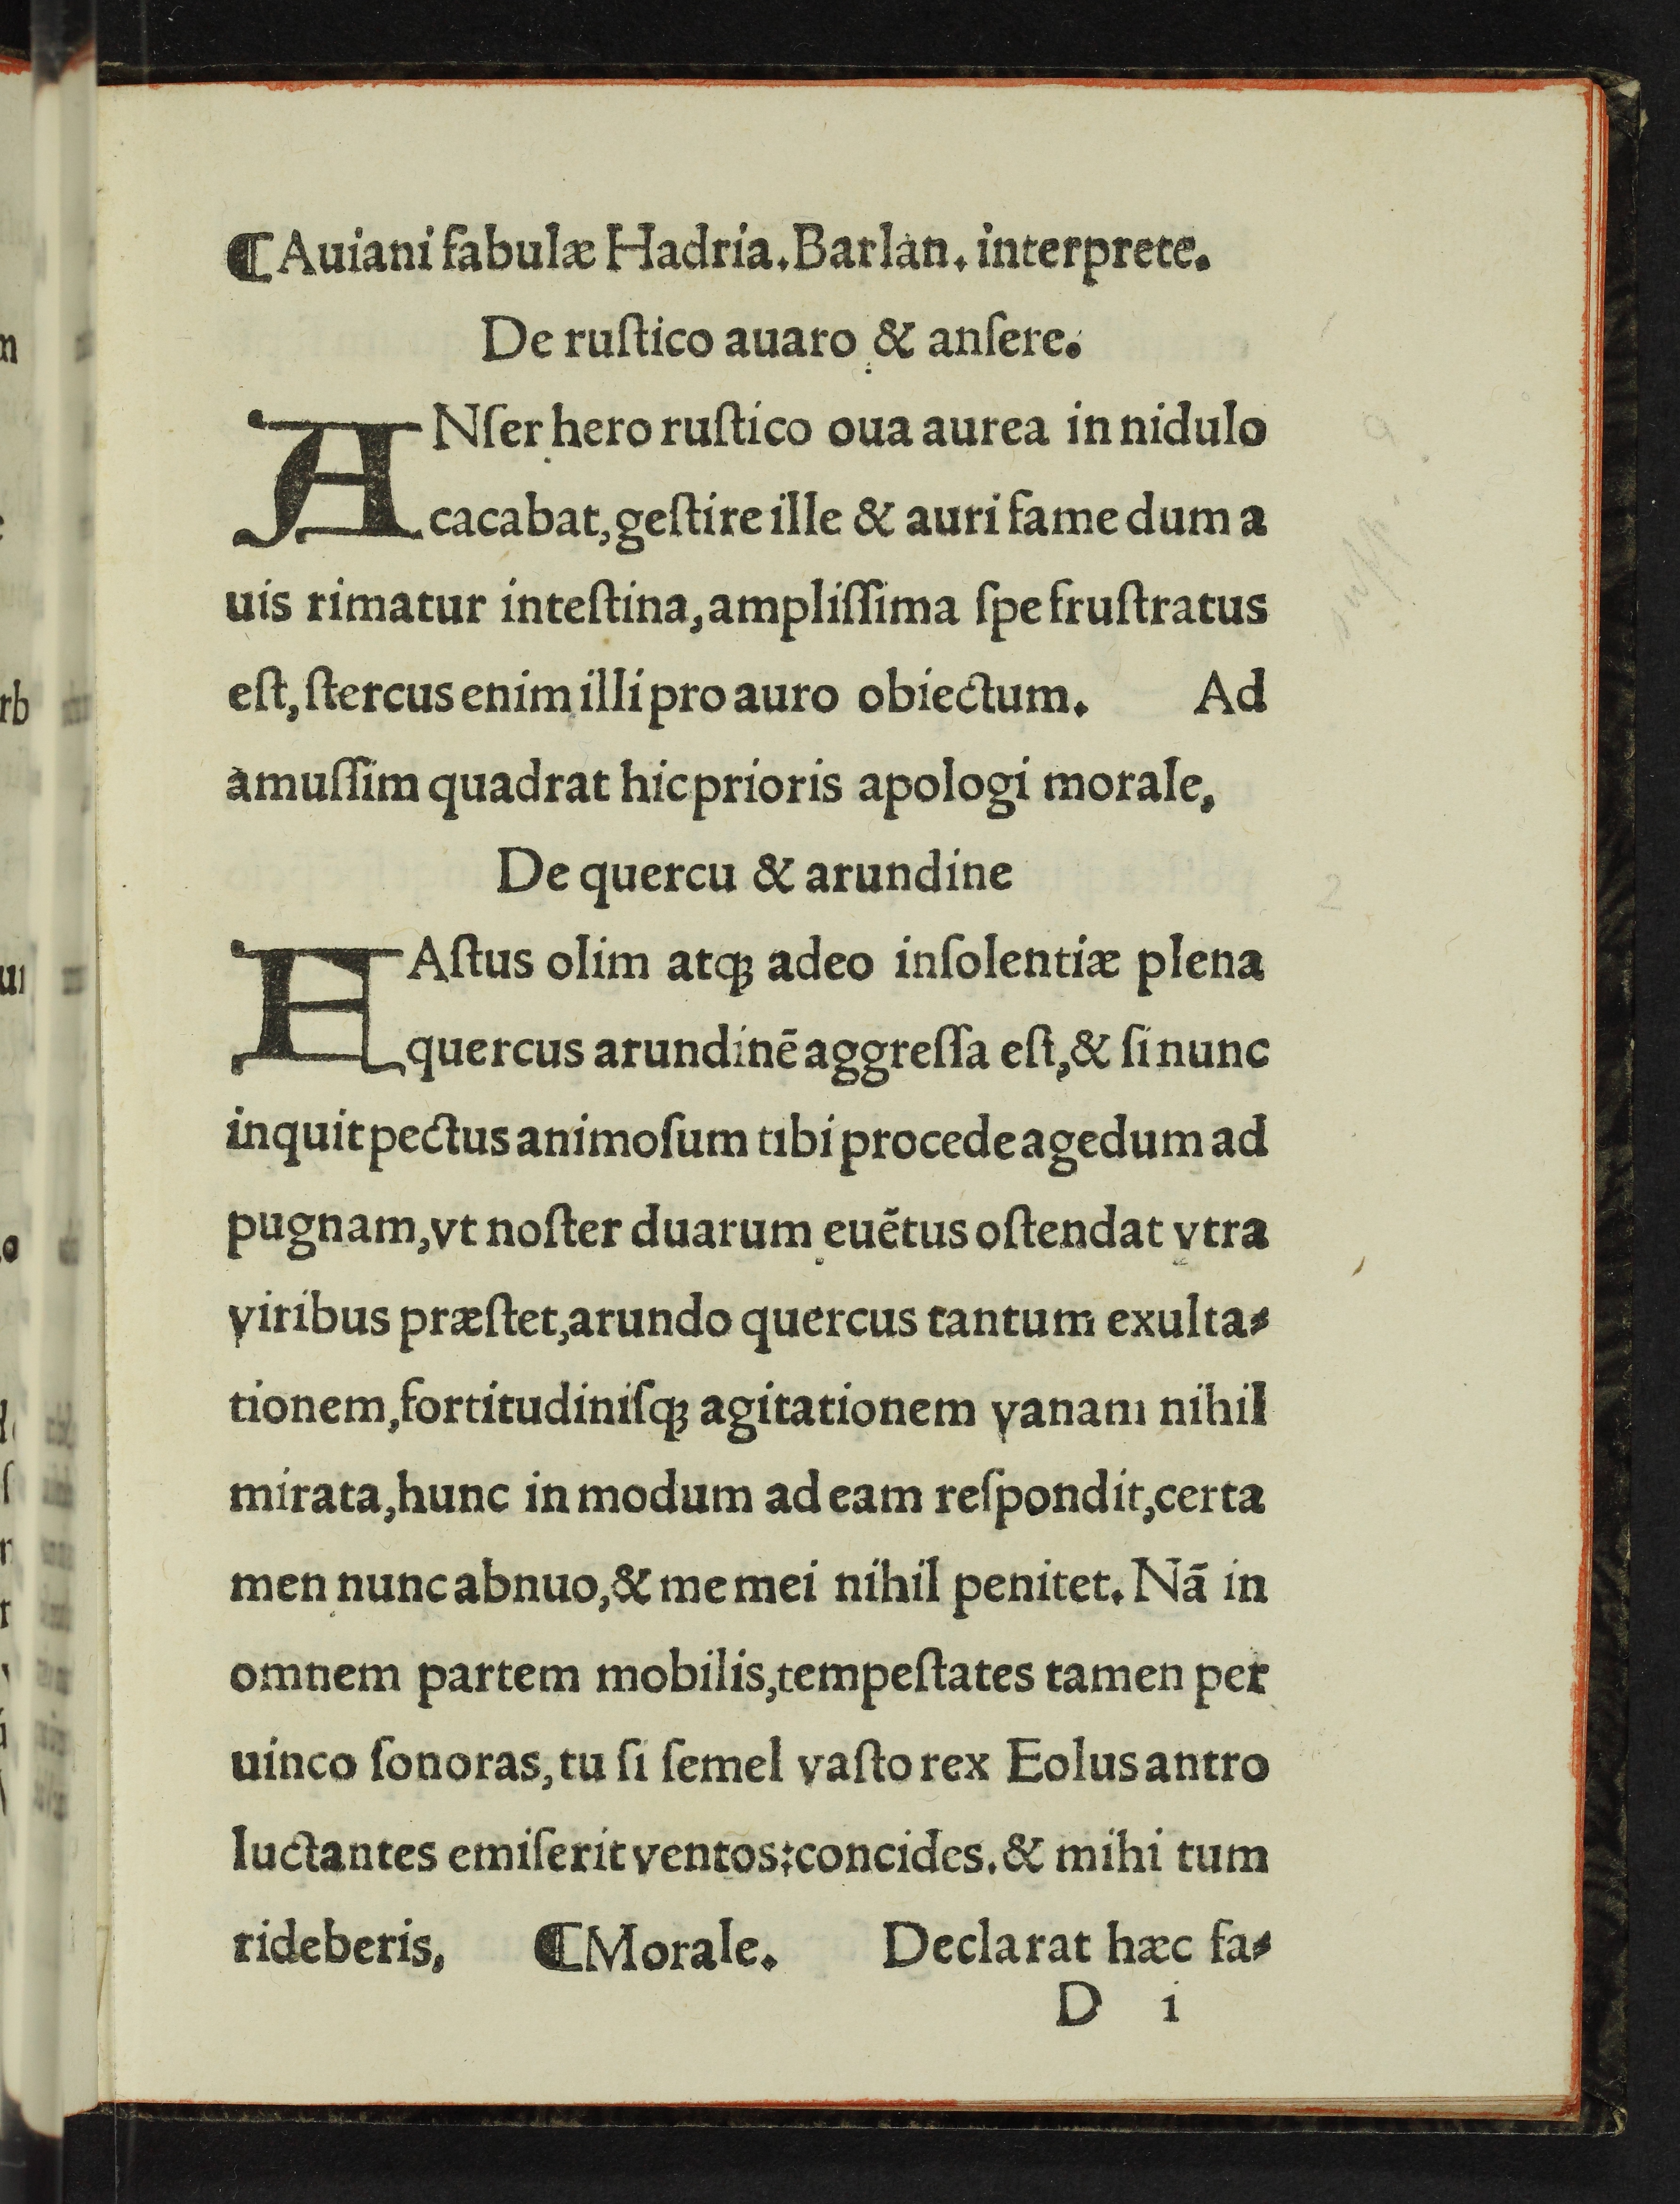 ¶ Auiani fabulæ Hadria. Barlan. interprete.
De ruſtico auaro & anſere.
ANſer hero ruſtico oua aurea in nidulo
cacabat, geſtire ille & auri fame dum a
uis rimatur inteſtina, ampliſſima ſpe fruſtratus
eſt, ſtercus enim illi pro auro obiectum. Ad
amuſſim quadrat hic prioris apologi morale,
De quercu & arundine
FAſtus olim atqꝫ adeo inſolentiæ plena
quercus arundinē aggreſſa eſt, & ſi nunc
inquit pectus animoſum tibi procede agedum ad
pugnam, vt noſter duarum euētus oſtendat vtra
viribus præſtet, arundo quercus tantum exulta⸗
tionem, fortitudiniſqꝫ agitationem vanam nihil
mirata, hunc in modum ad eam reſpondit, certa
men nunc abnuo, & me mei nihil penitet. Nā in
omnem partem mobilis, tempeſtates tamen per
uinco ſonoras, tu ſi ſemel vaſto rex Eolus antro
luctantes emiſerit ventos: concides. & mihi tum
rideberis, ¶ Morale. Declarat hæc fa⸗
D i
2